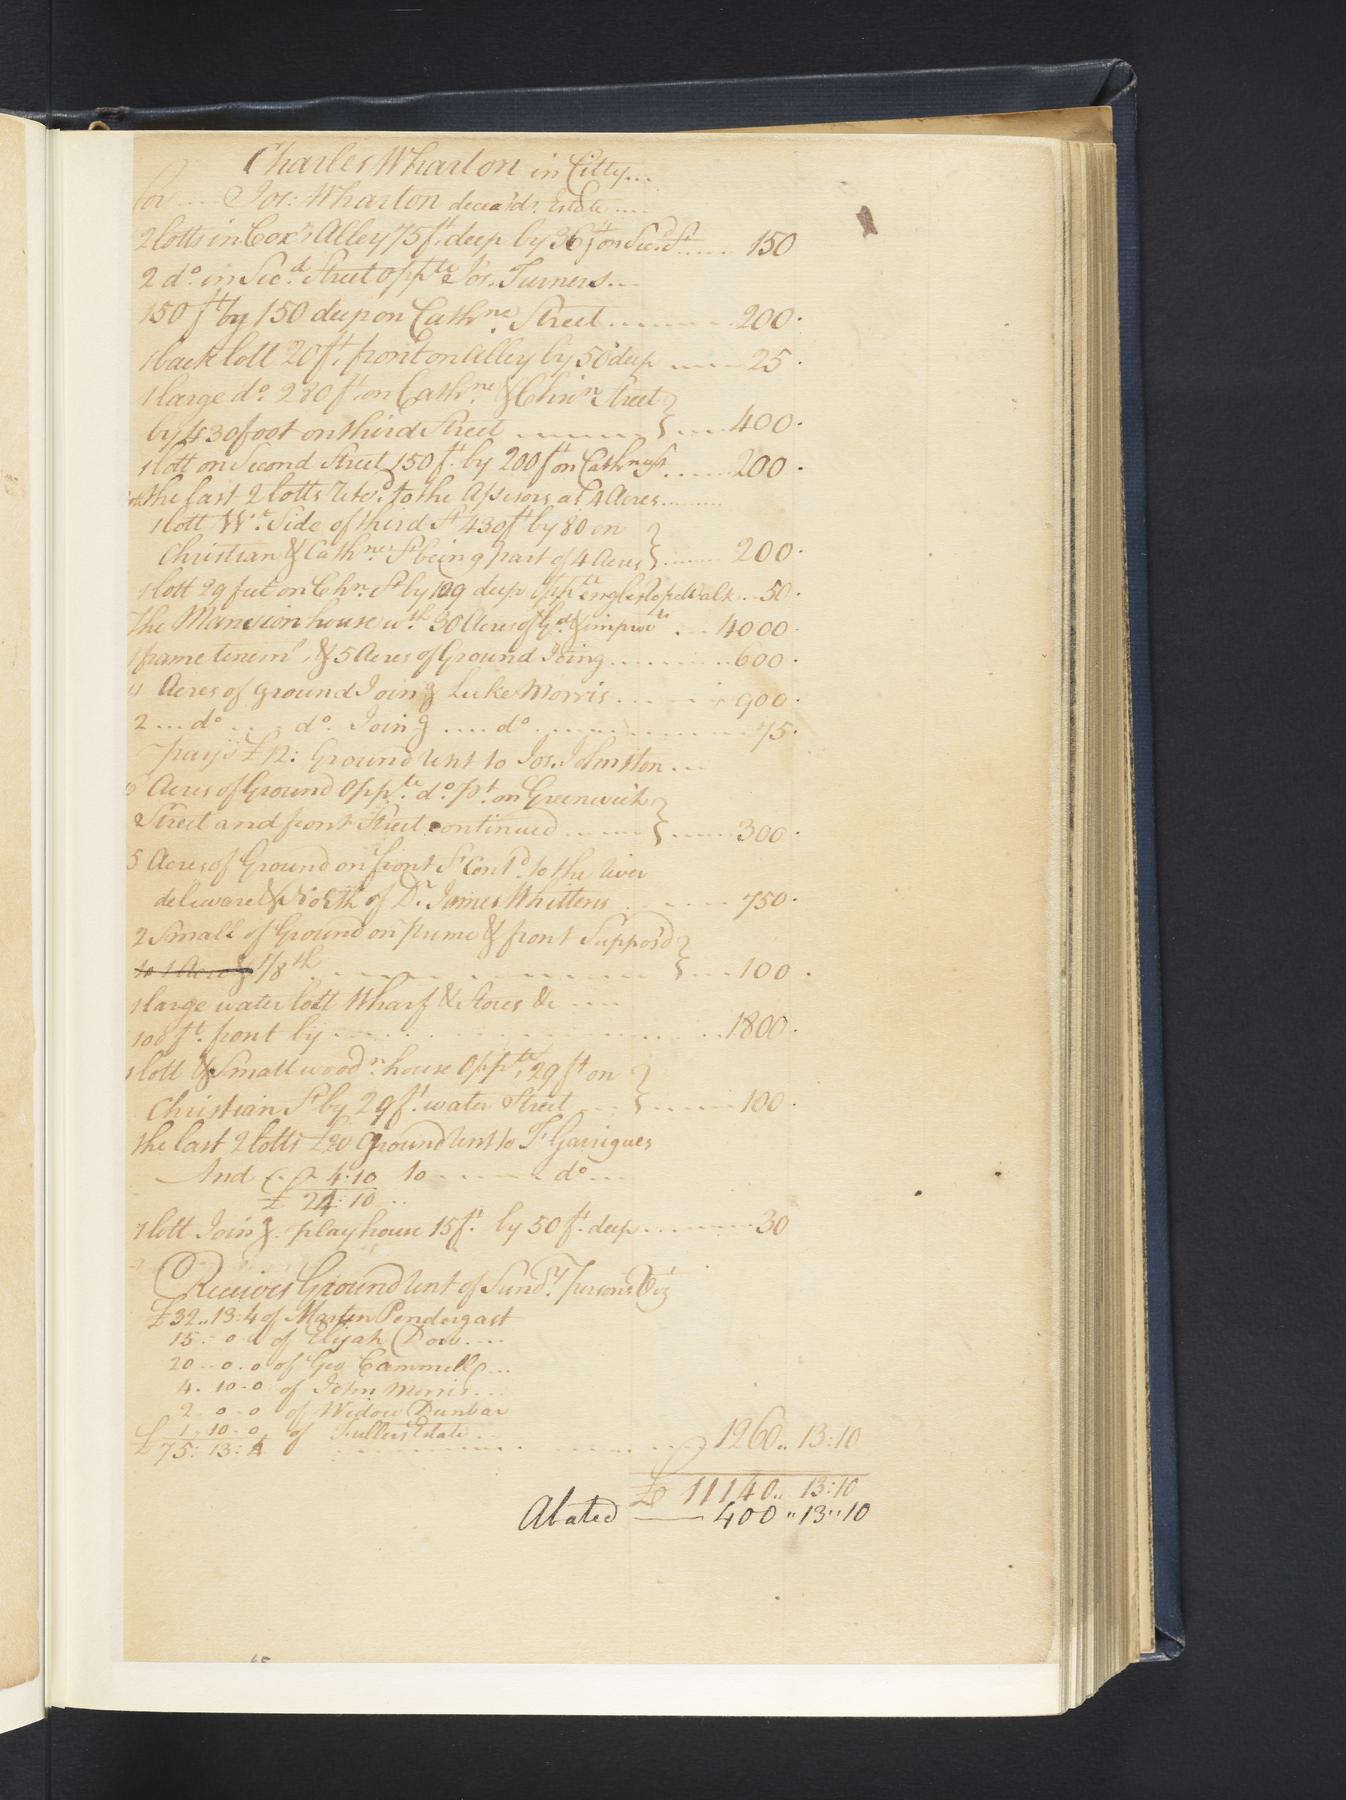 Charles Wharton in Citty...
for ... Jos: Wharton deceasds. Estate ....
2 lotts in Cox's Alley 75 ft. deep by 36 ft on Secd. St ..... 150
2 do. in Secd. Street oppte Jos. Turners...
150 ft by 150 deep on Cathne. Street ......... 200.
1 back lott 20 ft. front on Alley by 50 deep ...... 25.
1 large do. 280 ft on Cathne. & Chrisn. Street }
by 430 foot on third Street ......... } .... 400.
1 lott on Second Street 150 ft. by 200 ft on Cathne St ...... 200.
the last 2 lotts Retd. to the Assesors as 4 Acres........
1 lott Wt. Side of third St 430 ft by 80 on }
Christian & Cathne. St being part of 4 Acres } ...... 200.
1 lott 29 feet on Chrn. St by 129 deep oppte Ropewalk .. 50.
The Mansion house wth. 30 Acres of Gd. & improvts ... 4000.
1 frame tenemt. & 5 Acres of Ground Joing .......... 600.
11 Acres of Ground Joing Luke Morris ......... 900.
2 ... do ... do. Joing .... do ............... 75.
pays £12: Ground Rent to Jos. Johnston ...
6 Acres of Ground Oppte. do. pt. on Greenwich }
Street and front Street continued ...... } ...... 300.
5 Acres of Ground on front St Contd. to the River
deleware & North of Dr. James Whittens ....... 750.
2 Small of Ground on prime & front Suppos'd }
to 1 Acre & 1/8th ............... } ... 100.
1 large water lott Wharf & Stores &c ....
100 ft. front by ............... 1800.
1 lott & Small woodn. house Oppte, 29 ft on }
Christian St by 29 ft. water Street ... } ...... 100.
the last 2 lotts £20 Ground Rent to F Garrigues
And 4:10 to ....... do ...
£ 24:10 ..
1 lott Joing. playhouse 15 ft. by 50 ft. deep ......... 30
Receives Ground Rent of Sundy. persons Viz
£32..13:4 of Martin Pendergast
15.. 0.. of Elijah Dow ....
20..0.0 of Geo Cammell ...
4. 10-0 of John Morris ...
2 0 0 of Widow Dunbar
1 10 0 of Fullers Estate ..
£ 75: 13: 4 ............... 1260.. 13:10
£ 11140.. 13:10
Abated —— 400 "13"10